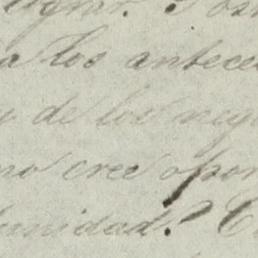 a los antece
y de los neg
no cree opor
tunidad? C